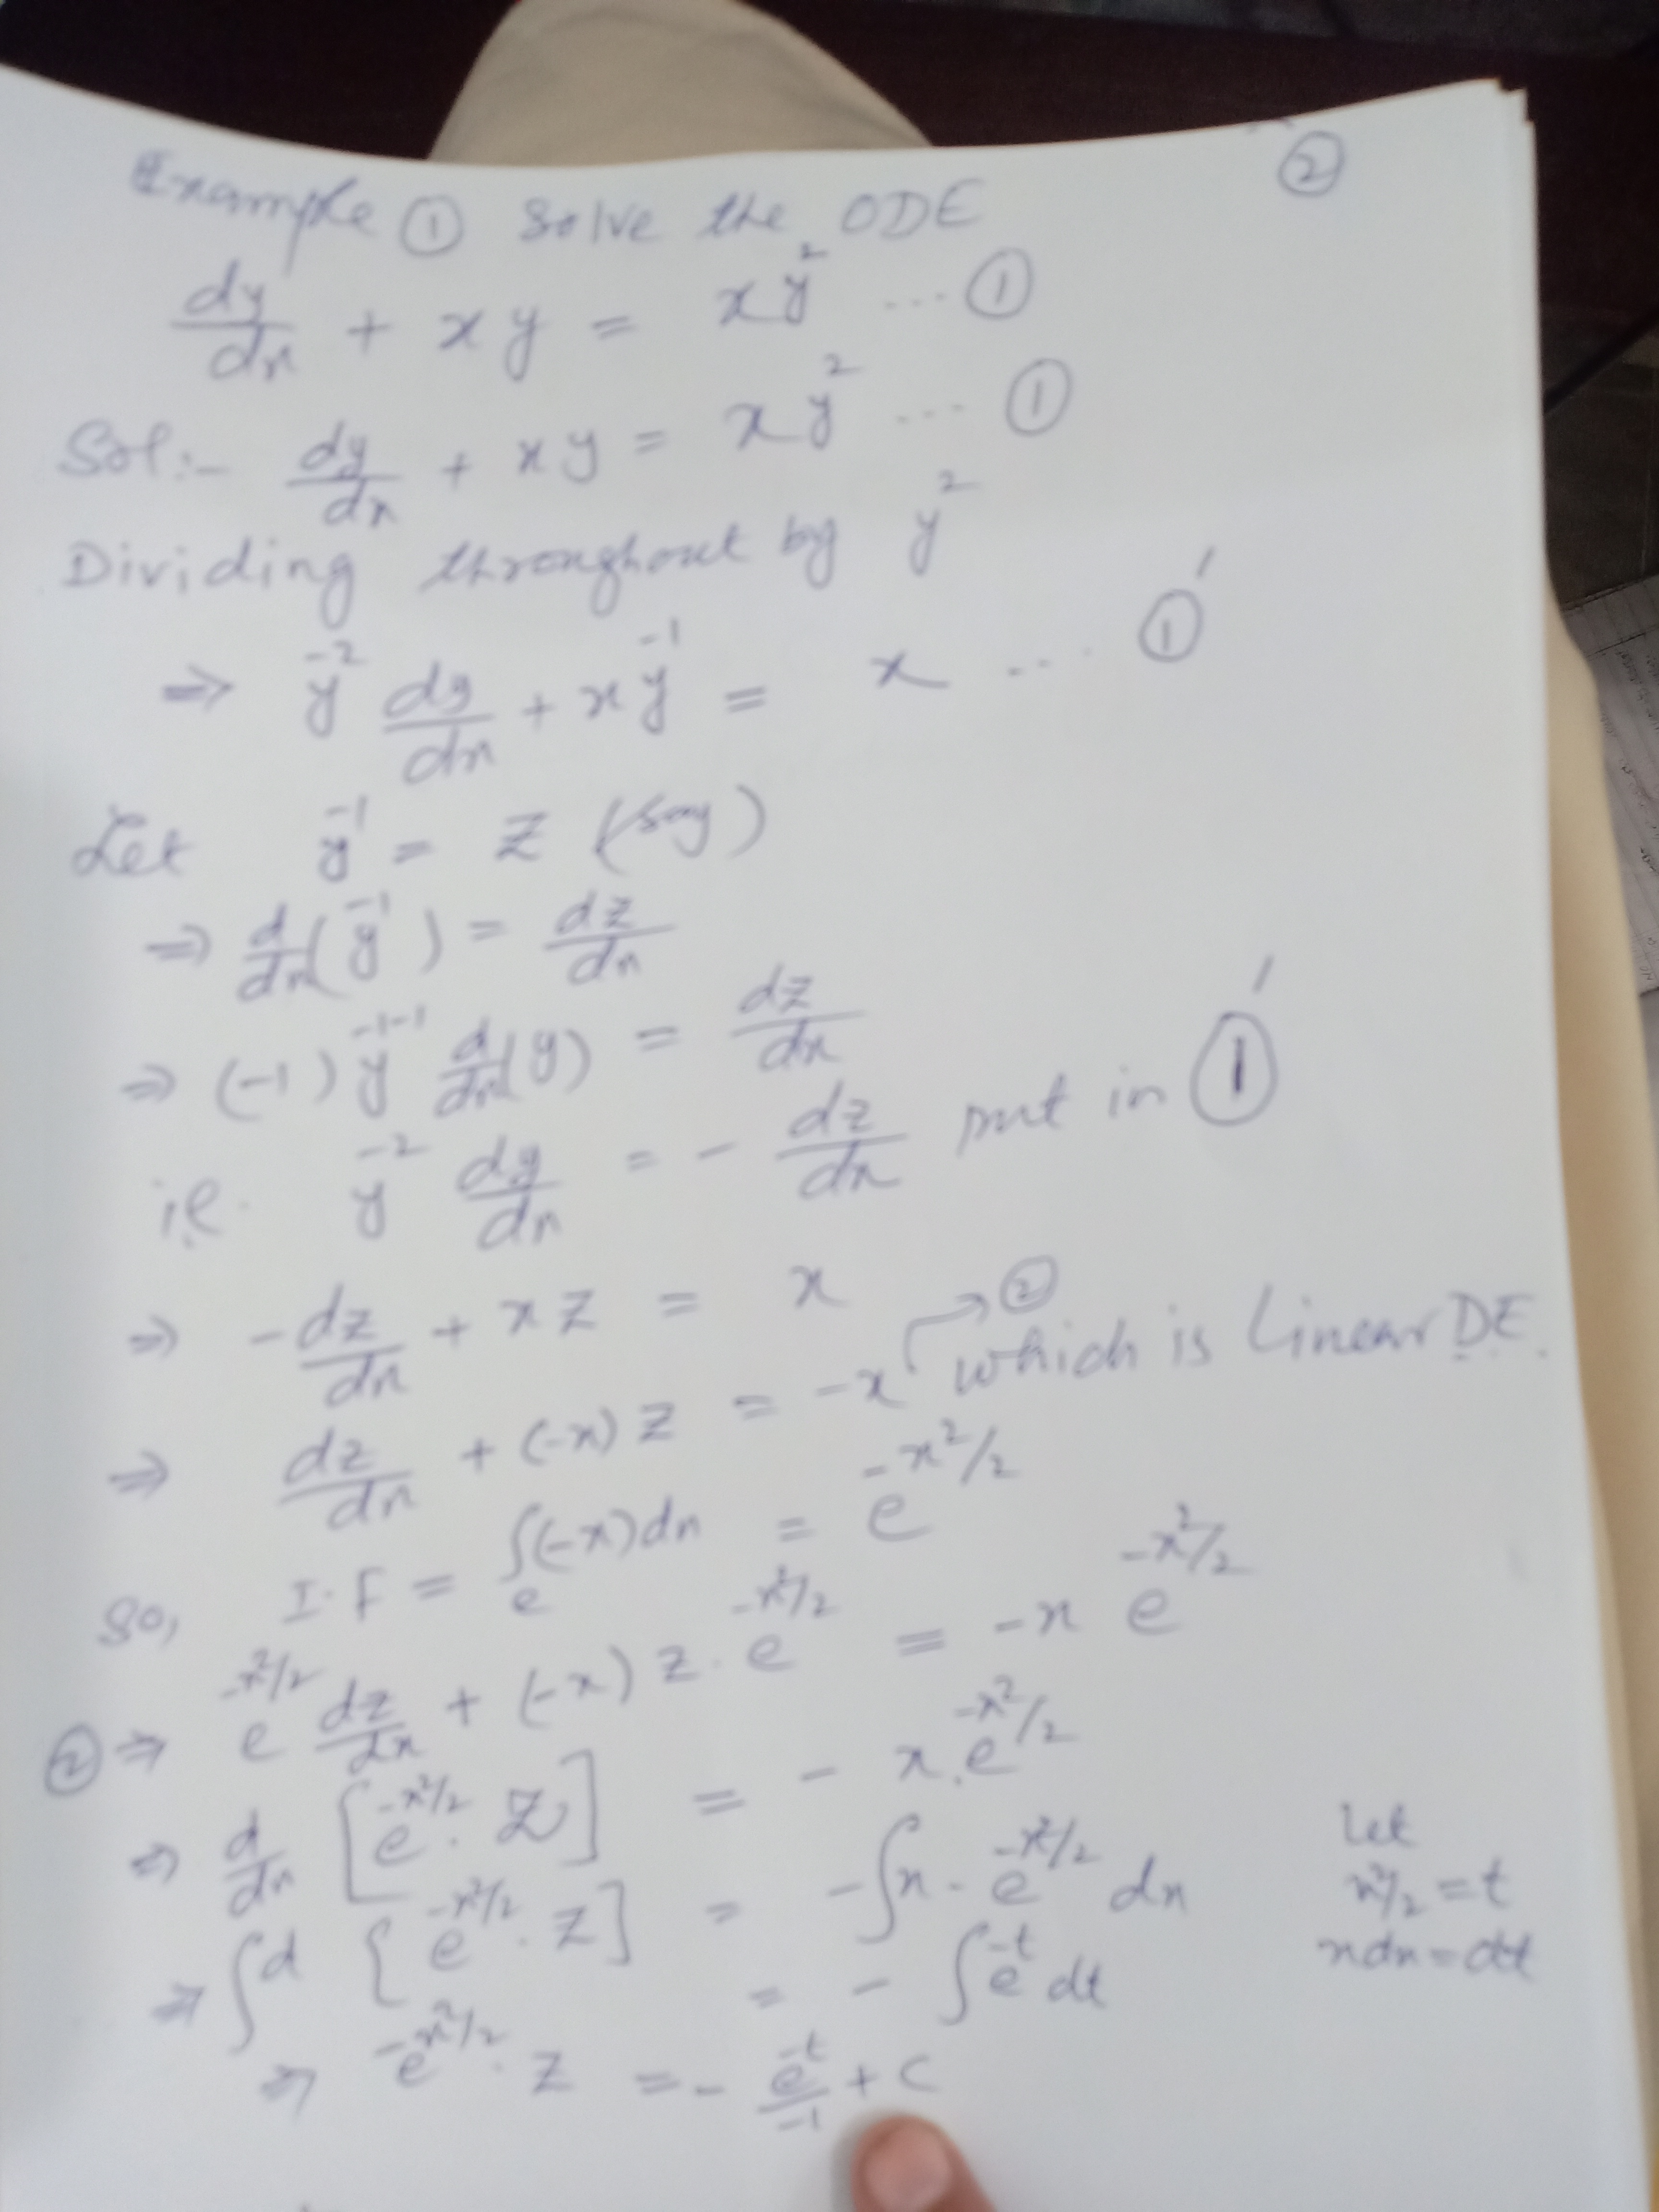 ②
Example ① Solve the ODE
dy/dx + xy = xy² ... ①
Sol:- dy/dx + xy = xy² ... ①
Dividing throughout by y²
⇒ y⁻² dy/dx + xy⁻¹ = x ... ①'
Let y⁻¹ = z (say)
⇒ d/dx(y⁻¹) = dz/dx
⇒ (-1) y⁻¹⁻¹ d/dx(y) = dz/dx
i.e. y⁻² dy/dx = - dz/dx put in ①'
⇒ -dz/dx + xz = x
⇒ dz/dx + (-x) z = -x → ② which is Linear D.E.
So, I.F = e^∫(-x)dx = e^-x²/2
② ⇒ e^-x²/2 dz/dx + (-x) z . e^-x²/2 = -x e^-x²/2
⇒ d/dx [e^-x²/2 . z] = - x . e^-x²/2
⇒ ∫d {e^-x²/2 . z] = -∫x . e^-x²/2 dx
Let
x²/2 = t
xdx = dt
= - ∫e^-t dt
⇒ e^-x²/2 . z = - e^-t/-1 + c